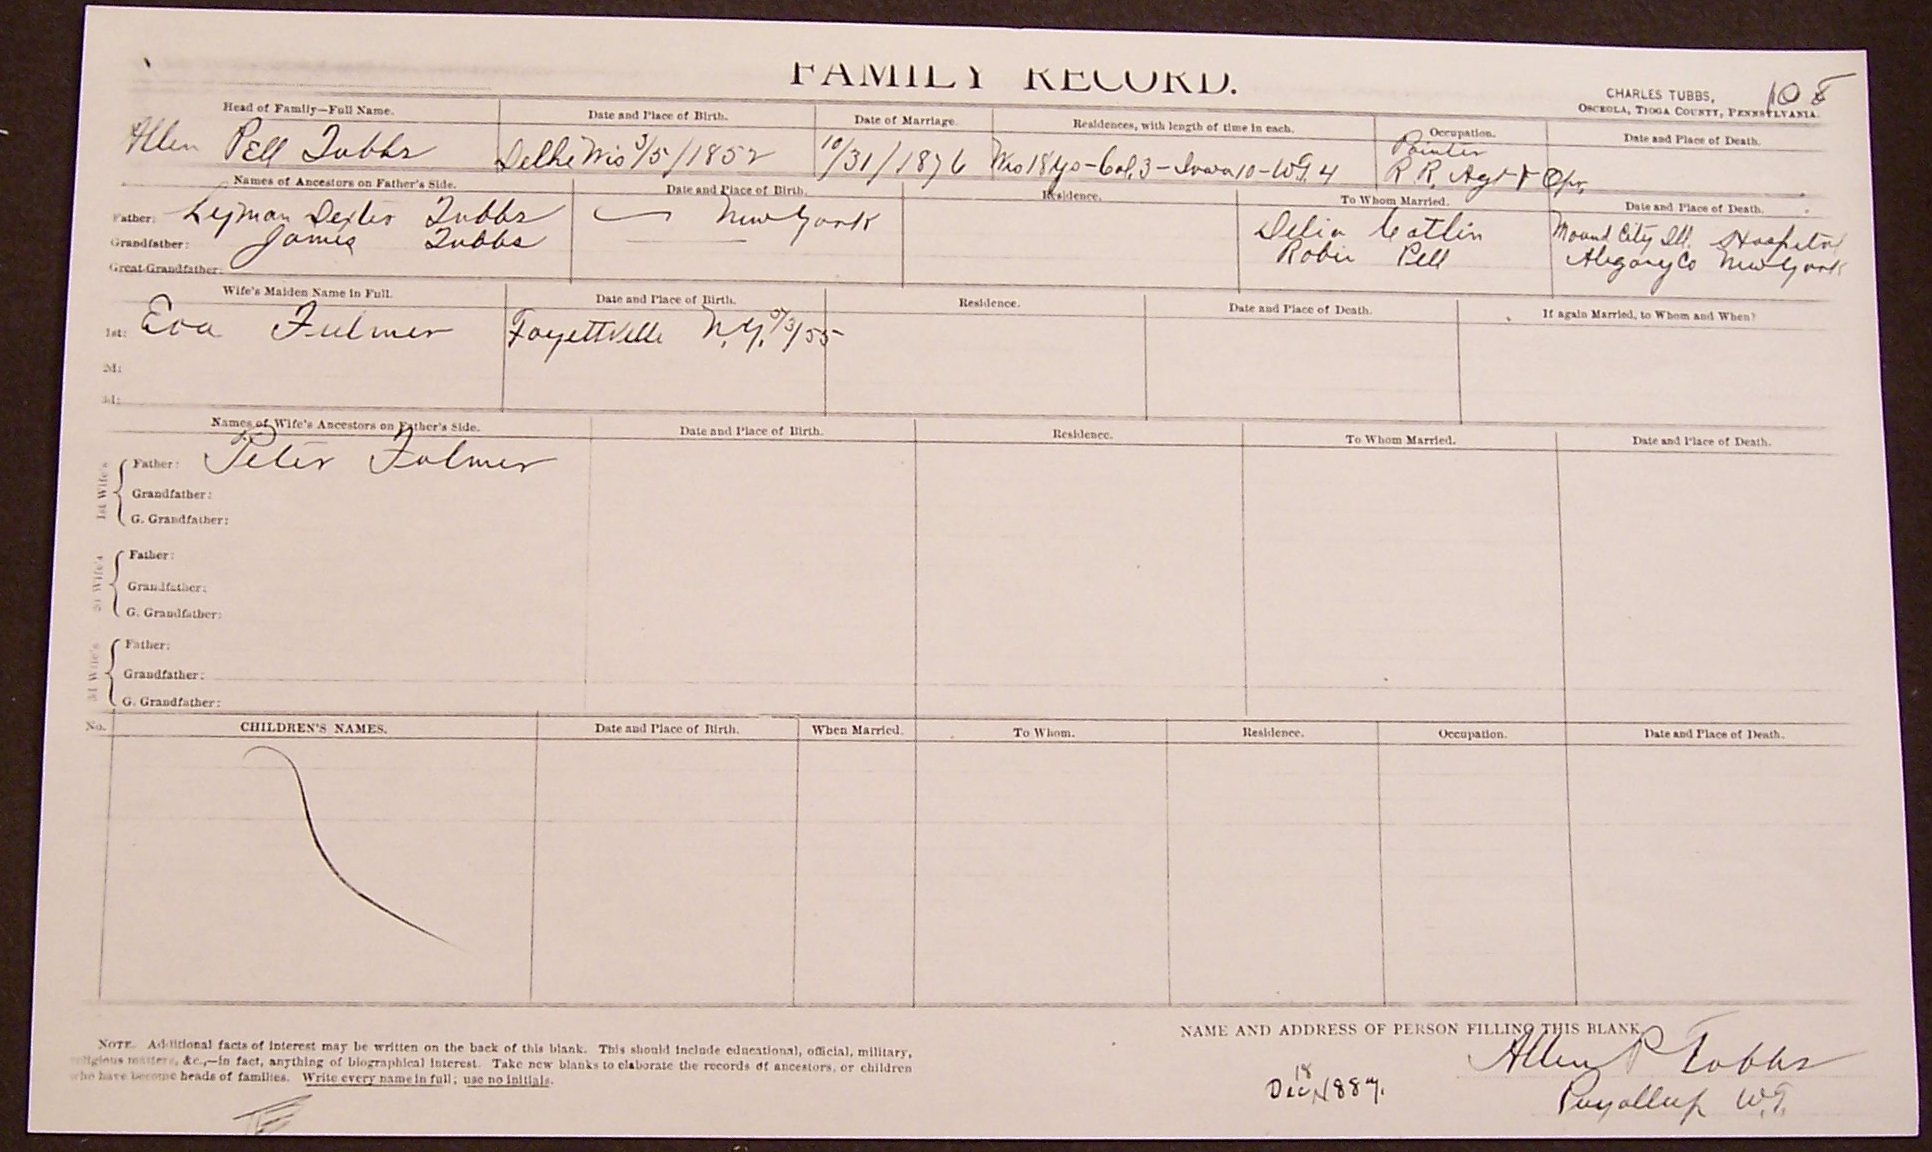 FAMILY RECORD.
108
CHARLES TUBBS,
OSCEOLA, TIOGA COUNTY, PENNSYLVANIA.
Head of Family—Full Name. Date and Place of Birth. Date of Marriage. Residences, with length of time in each. Occupation. Date and Place of Death.
Painter
Allen Pell Tubbs Delhi Wis 3/5/1852 10/31/1876 Wis 18 yrs - Col, 3 - Iowa 10 - W.T. 4 R R. Agt & Opr.
Names of Ancestors on Father's Side. Date and Place of Birth. Residence. To Whom Married. Date and Place of Death.
Father: Lyman Dexter Tubbs — New York Delia Catlin Mound City Ill. Hospital
Grandfather: James Tubbs Pell Alegany Co New York
Great-Grandfather:
Wife's Maiden Name in Full. Date and Place of Birth. Residence. Date and Place of Death. If again Married, to Whom and When?
1st: Eva Fulmer Fayettville N.Y. 5/3/55
2d:
3d:
Names of Wife's Ancestors on Father's Side. Date and Place of Birth. Residence. To Whom Married. Date and Place of Death.
1st Wife's
Father: Peter Fulmer
Grandfather:
G. Grandfather:
2d Wife's
Father:
Grandfather:
G. Grandfather:
3d Wife's
Father:
Grandfather:
G. Grandfather:
No. CHILDREN'S NAMES. Date and Place of Birth. When Married. To Whom. Residence. Occupation. Date and Place of Death.
NOTE. Additional facts of interest may be written on the back of this blank. This should include educational, official, military,
religious matters, &c.,—in fact, anything of biographical interest. Take new blanks to elaborate the records of ancestors, or children
who have become heads of families. Write every name in full; use no initials.
NAME AND ADDRESS OF PERSON FILLING THIS BLANK.
Allen P Tubbs
Dec 18 1889.
Puyallup W.T.